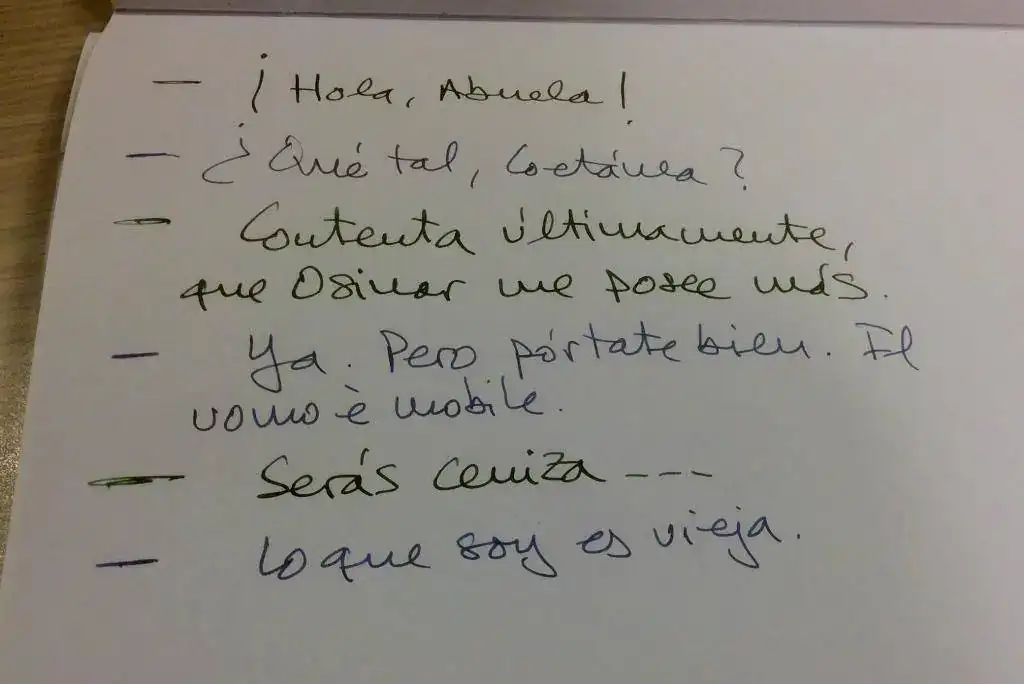 — ¡Hola, Abuela!
— ¿Qué tal, Coetánea?
— Contenta últimamente,
que Osinar me posee más.
— Ya. Pero pórtate bien. Il
uomo è mobile.
— Serás ceniza ---
— Lo que soy es vieja.